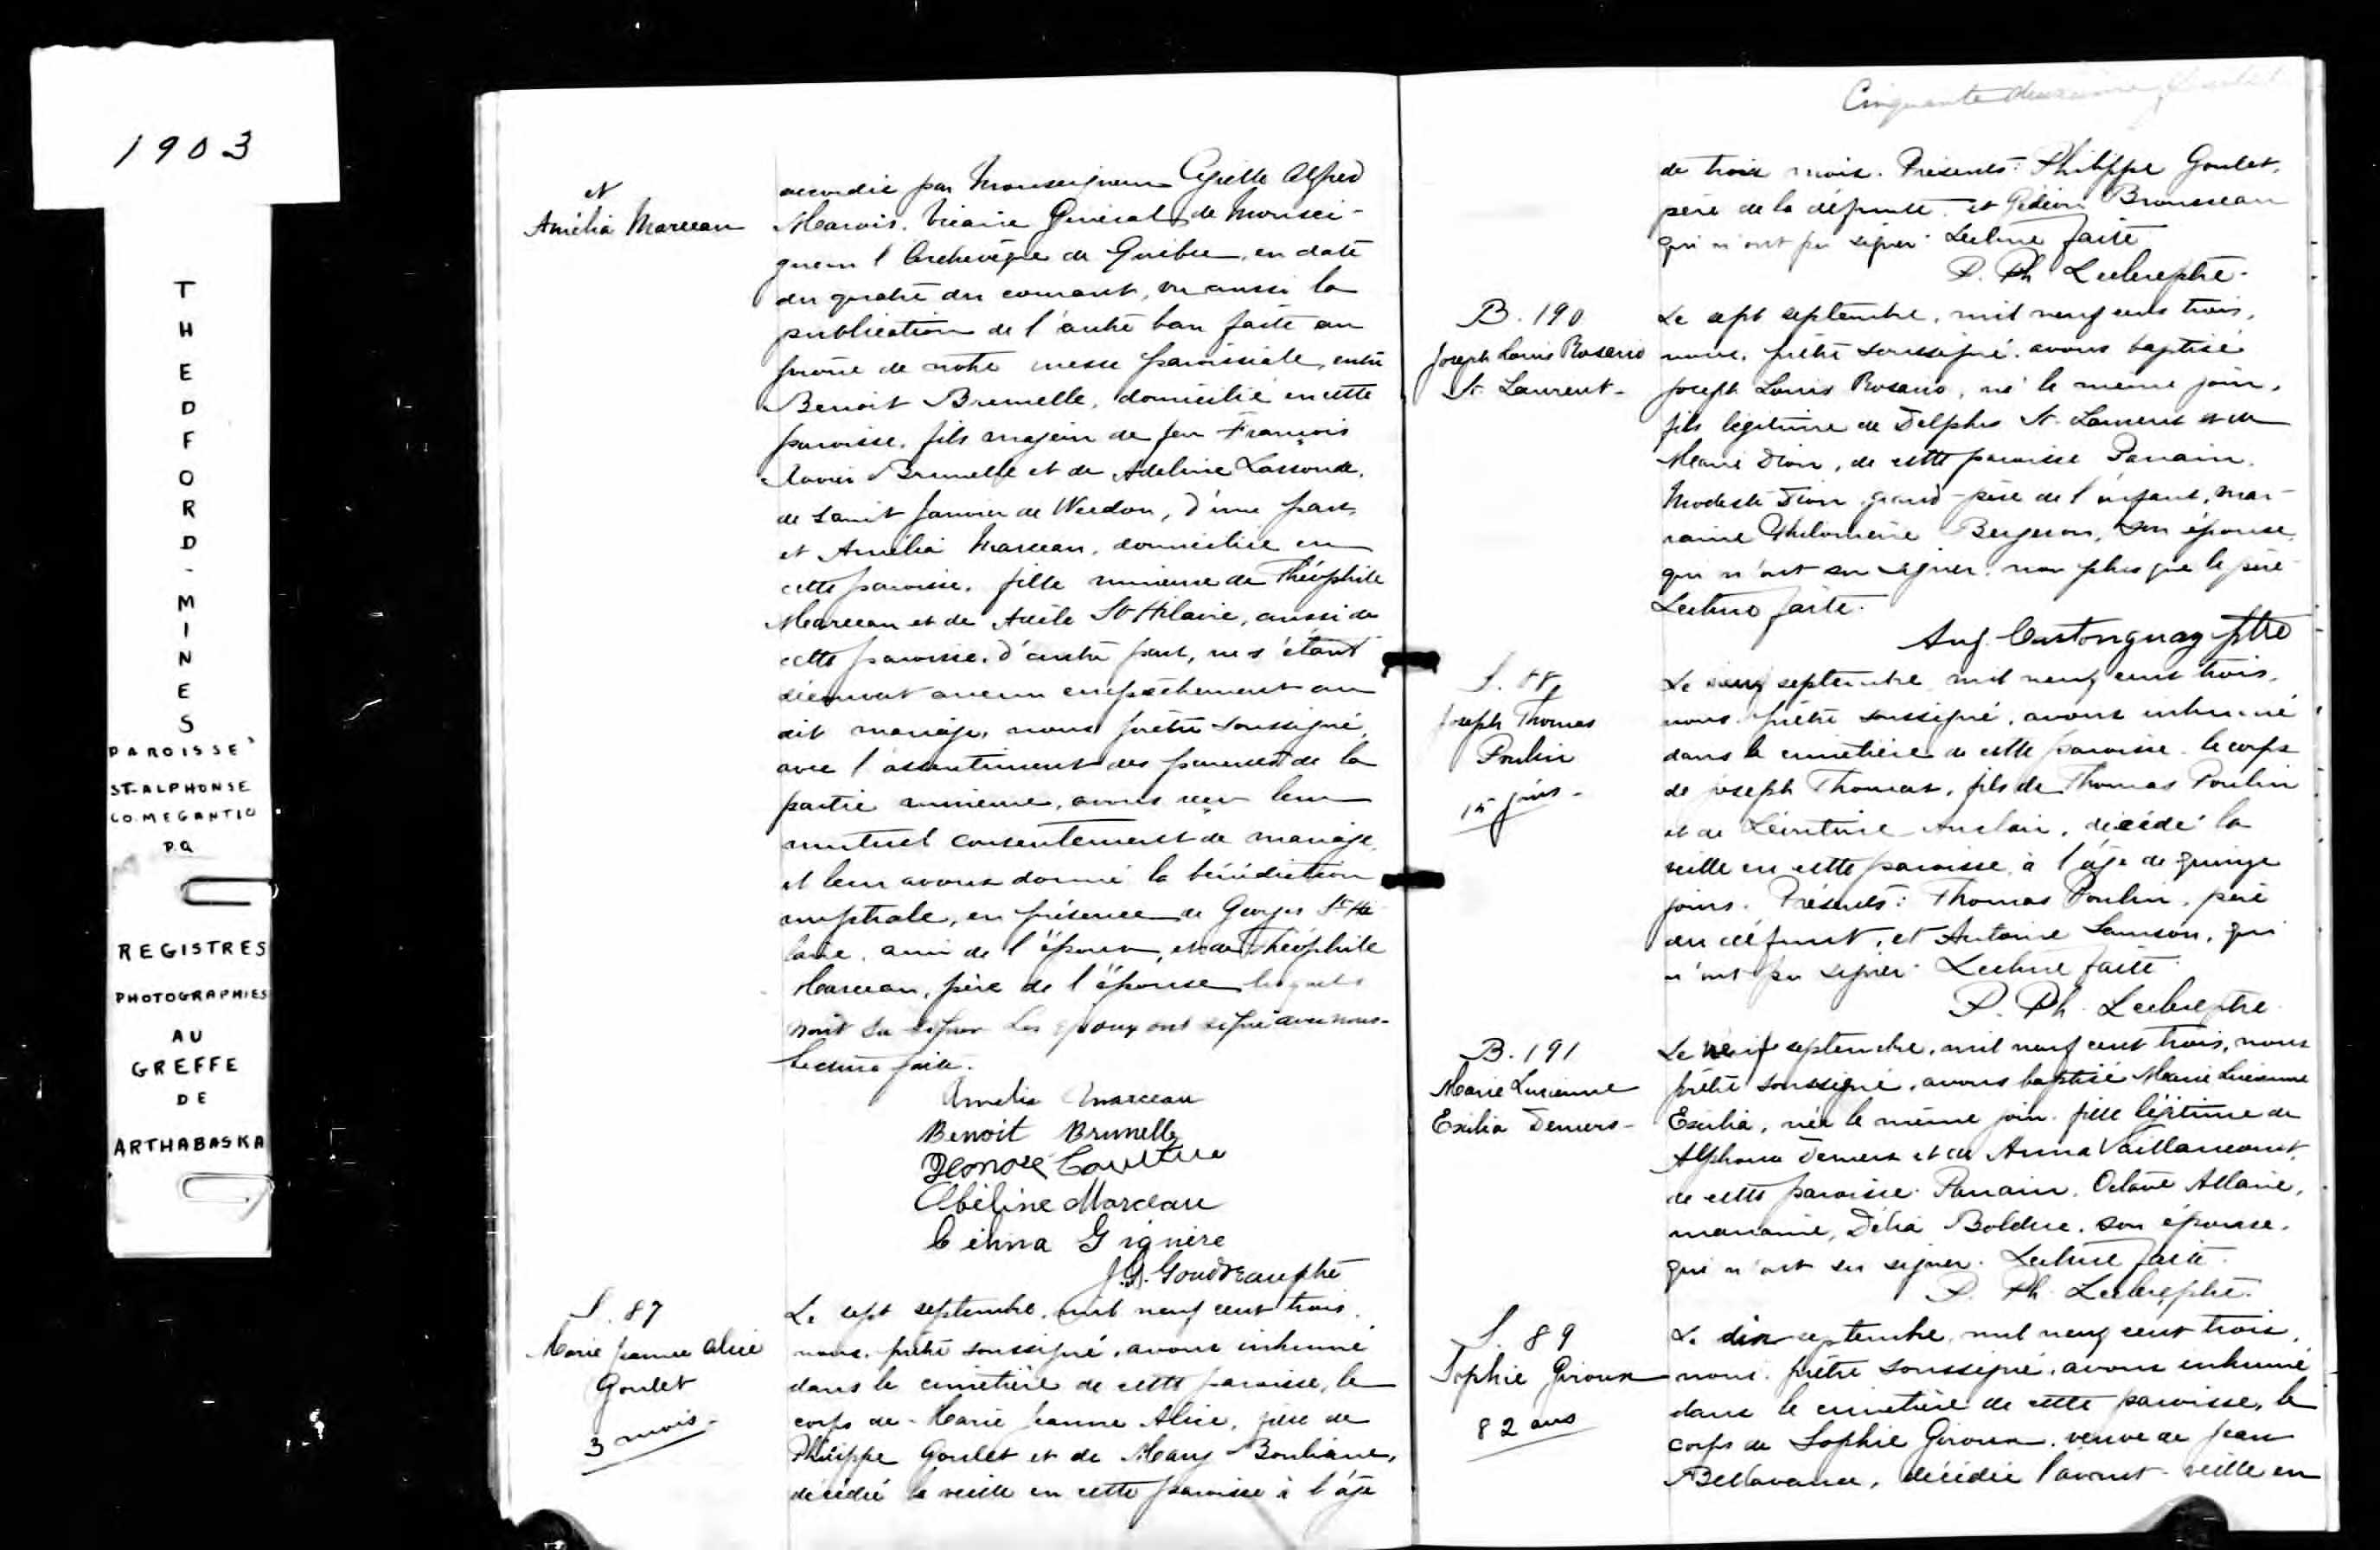 1903
THEDFORD-MINES
PAROISSE
ST-ALPHONSE
CO. MEGANTIC
P.Q
REGISTRES
PHOTOGRAPHIES
AU
GREFFE
DE
ARTHABASKA
et
Amélia Marceau
accordée par Monseigneur Cyrille Alfred
Marois, Vicaire Général de Monsei-
gneur l'Archevêque de Québec, en date
du quatre du courant, vu aussi la
publication de l'autre ban faite au
prône de notre messe paroissiale, entre
Benoit Brunelle, domicilié en cette
paroisse, fils majeur de feu François
Xavier Brunelle et de Adeline Lassonde,
de Saint Janvier de Weedon, d'une part,
et Amélia Marceau, domiciliée en
cette paroisse, fille mineure de Théophile
Marceau et de Adèle St Hilaire, aussi de
cette paroisse, d'autre part, ne s'étant
découvert aucun empêchement au
dit mariage, nous prêtre soussigné,
avec l'assentiment des parents de la
partie mineure, avons reçu leur
mutuel consentement de mariage,
et leur avons donné la bénédiction
nuptiale, en présence de Georges St Hi-
laire, ami de l'époux, et de Théophile
Marceau, père de l'épouse lesquels
n'ont su signer Les époux ont signé avec nous-
Lecture faite.
Amelia Marceau
Benoit Brunelle
Honoré Couture
Abéline Marceau
J.G. Goudreau ptre
S. 87
Marie Jeanne Alice
Goulet
3 mois-
Le sept septembre, mil neuf cent trois,
nous, prêtre soussigné, avons inhumé
dans le cimetière de cette paroisse, le
corps de Marie Jeanne Alice, fille de
Philippe Goulet et de Mary Bouliane,
décédé la veille en cette paroisse à l'âge
Cinquante deuxième feuillet
de trois mois. Présents: Philippe Goulet,
père de la défunte, et Gédéon Brousseau
qui n'ont pu signer. Lecture faite
P. Ph Leclerc ptre-
B. 190
Joseph Louis Rosario
St. Laurent-
Le sept septembre, mil neuf cent trois,
nous, prêtre soussigné, avons baptisé
Joseph Louis Rosario, né le même jour,
fils légitime de Delphis St. Laurent et de
Marie Dion, de cette paroisse Parrain,
Modeste Dion, grand-père de l'enfant, mar-
raine Philomène Bergeron, son épouse,
qui n'ont su signer, non plus que le père
Lecture faite.
Aug. Castonguay ptre
S. 88
Joseph Thomas
Poulin
15 jours-
Le septembre mil neuf cent trois,
nous prêtre soussigné, avons inhumé
dans le cimetière de cette paroisse le corps
de Joseph Thomas, fils de Thomas Poulin
et de Léontine Anclair, décédé la
veille en cette paroisse, à l'âge de quinze
jours. Présents: Thomas Poulin, père
du défunt, et Antoine Samson, qui
n'ont pu signer. Lecture faite.
P. Ph. Leclerc ptre.
B. 191
Marie Lucienne
Exilia Demers-
Le neuf septembre, mil neuf cent trois, nous
prêtre soussigné, avons baptisé Marie Lucienne
Exilia, née le même jour, fille légitime de
Alphonse Demers et de Anna Vaillancourt,
de cette paroisse. Parrain, Octave Allaire,
marraine, Délia Bolduc, son épouse,
qui n'ont su signer. Lecture faite.
P. Ph. Leclerc ptre.
S. 89
Sophie Giroux
82 ans
Le dix septembre, mil neuf cent trois,
nous, prêtre soussigné, avons inhumé
dans le cimetière de cette paroisse, le
corps de Sophie Giroux, veuve de Jean
Bellavance, décédée l'avant-veille en